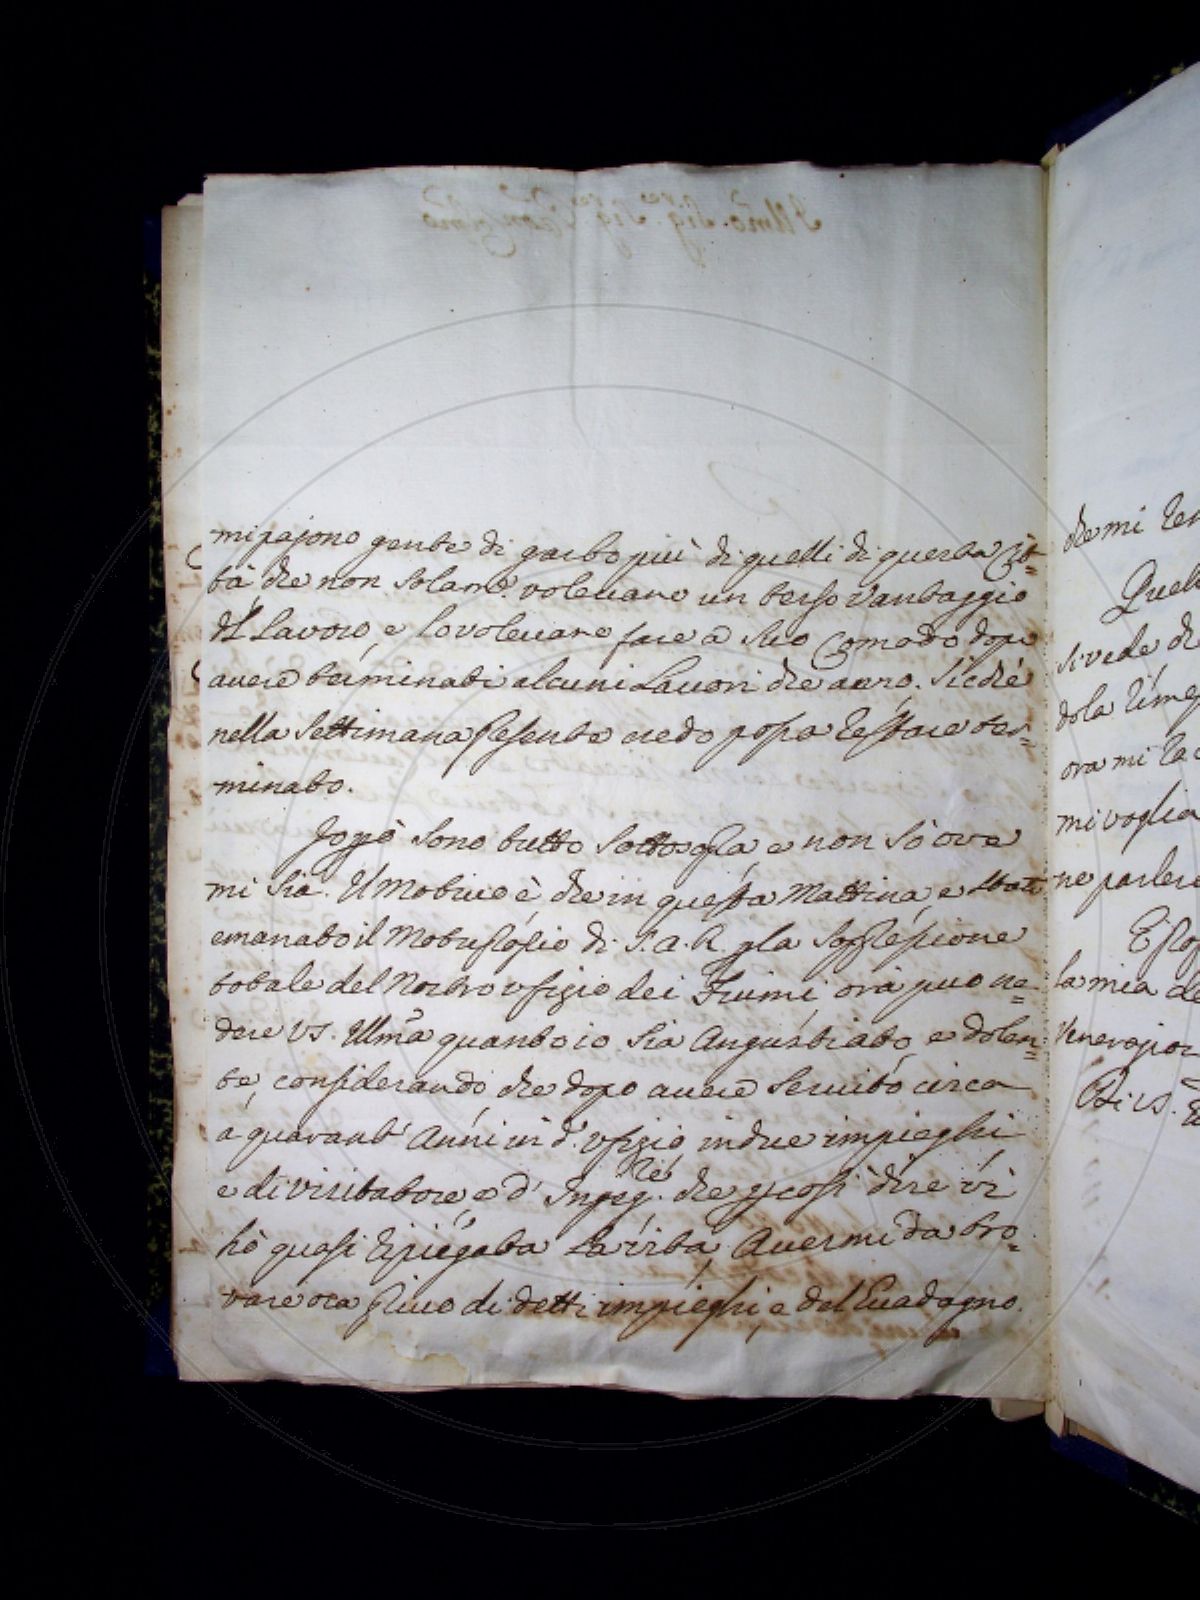 mi pajono gente di garbo più di quelli di questa Cit=
tà, che non solam.e volevano un terso vantaggio
d'l Lavoro, e lo volevano fare a suo Comodo dopo
avere terminati alcuni Lavori che anno. Sicchè
nella Settimana presente credo possa restare ter=
minato.
Io poi sono tutto sottosopra, e non sò ove
mi sia. Il Motivo è che in questa Mattina e stato
emanato il Motuproprio di S. A. R. p la soppressione
totale del Nostro ufizio dei Fiumi, ora può ve=
dere VS. Ill.ma quanto io sia Angustiato, e dolen=
te, considerando che dopo avere servito circa
a quarant' Anni in d.o ufizio in due impieghi
e di visitatore, e d' Ingeg.re che p così dire vi
hò quasi ripiegata la vita, Avermi da tro=
vare ora privo di detti impieghi, e del Guadagno.
che mi
si vede
ora mi
mi voglia
la mia
Di VS.